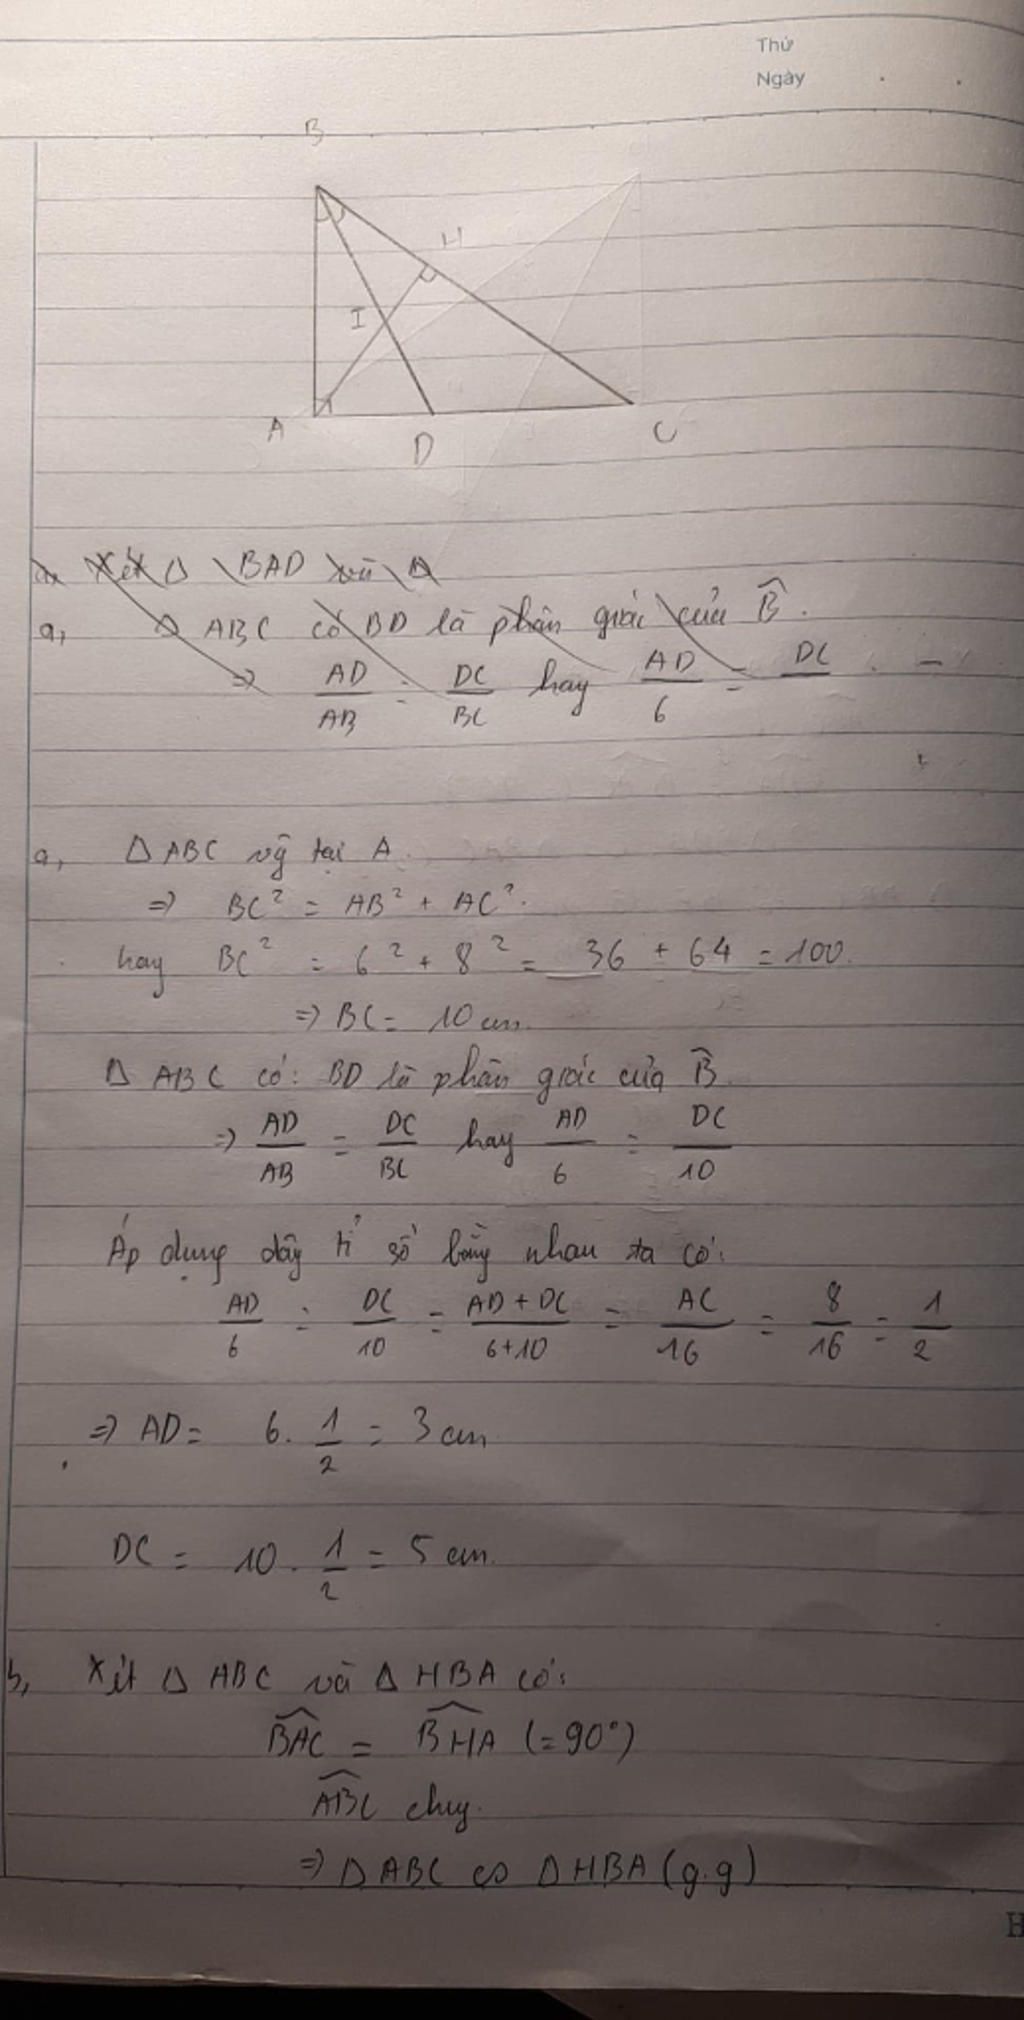 Thứ
Ngày
B
H
I
A
D
C
a, Xét Δ BAD và Δ
a, Δ ABC có BD là phân giác của B̂.
=> AD/AB = DC/BC hay AD/6 = DC/
a, Δ ABC vg tại A.
=> BC² = AB² + AC².
hay BC² = 6² + 8² = 36 + 64 = 100.
=> BC = 10 cm.
Δ ABC có: BD là phân giác của B̂.
=> AD/AB = DC/BC hay AD/6 = DC/10
Áp dụng dãy tỉ số bằng nhau ta có:
AD/6 = DC/10 = AD + DC/6+10 = AC/16 = 8/16 = 1/2
=> AD = 6. 1/2 = 3 cm
DC = 10. 1/2 = 5 cm.
b, Xét Δ ABC và Δ HBA có:
B̂AC = B̂HA (=90°)
ÂBC chug.
=> Δ ABC ∽ Δ HBA (g.g)
H